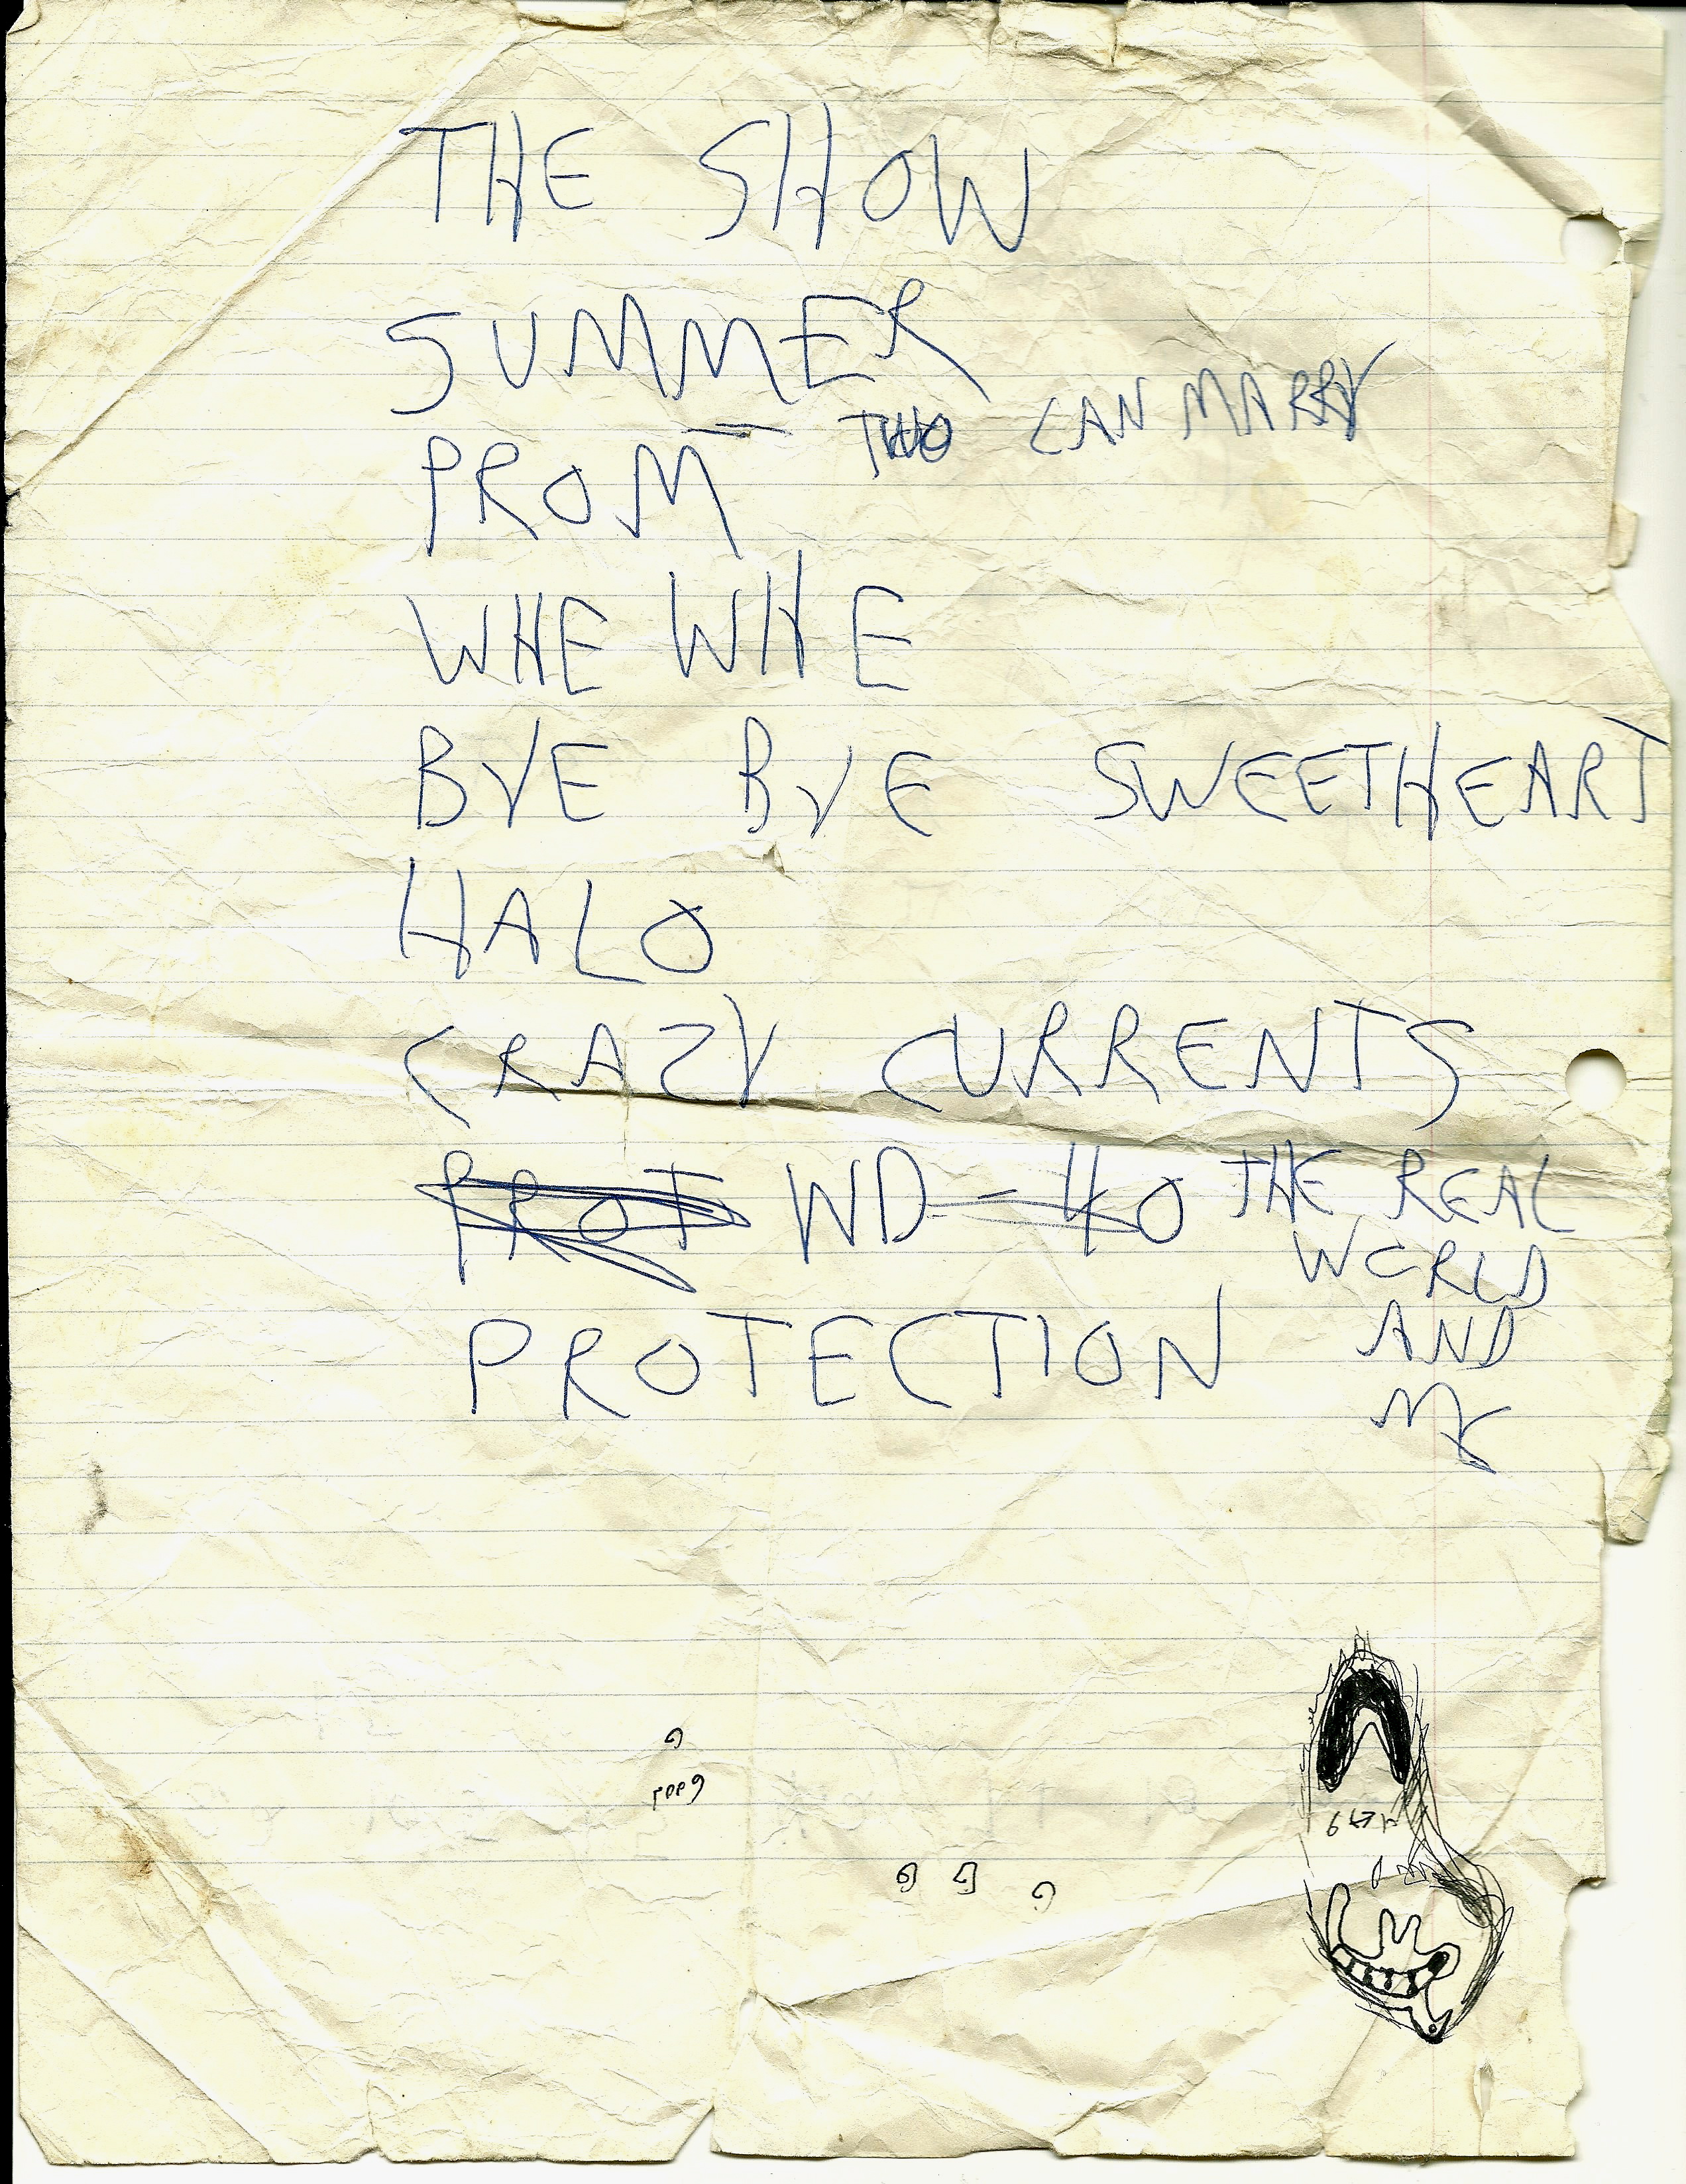 THE SHOW
SUMMER
PROM — TWO CAN MARRY
WHE WHE
BYE BYE SWEETHEART
HALO
CRAZY CURRENTS
PROT WD-40 THE REAL
WORLD
PROTECTION AND
ME